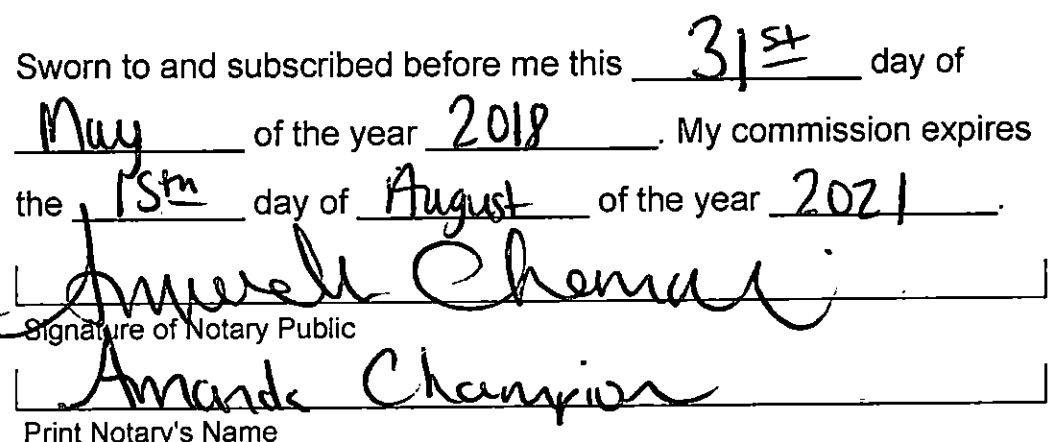 Sworn to and subscribed before me this 31st day of
May of the year 2018. My commission expires
the 15th day of August of the year 2021.
Signature of Notary Public
Amanda Champion
Print Notary's Name